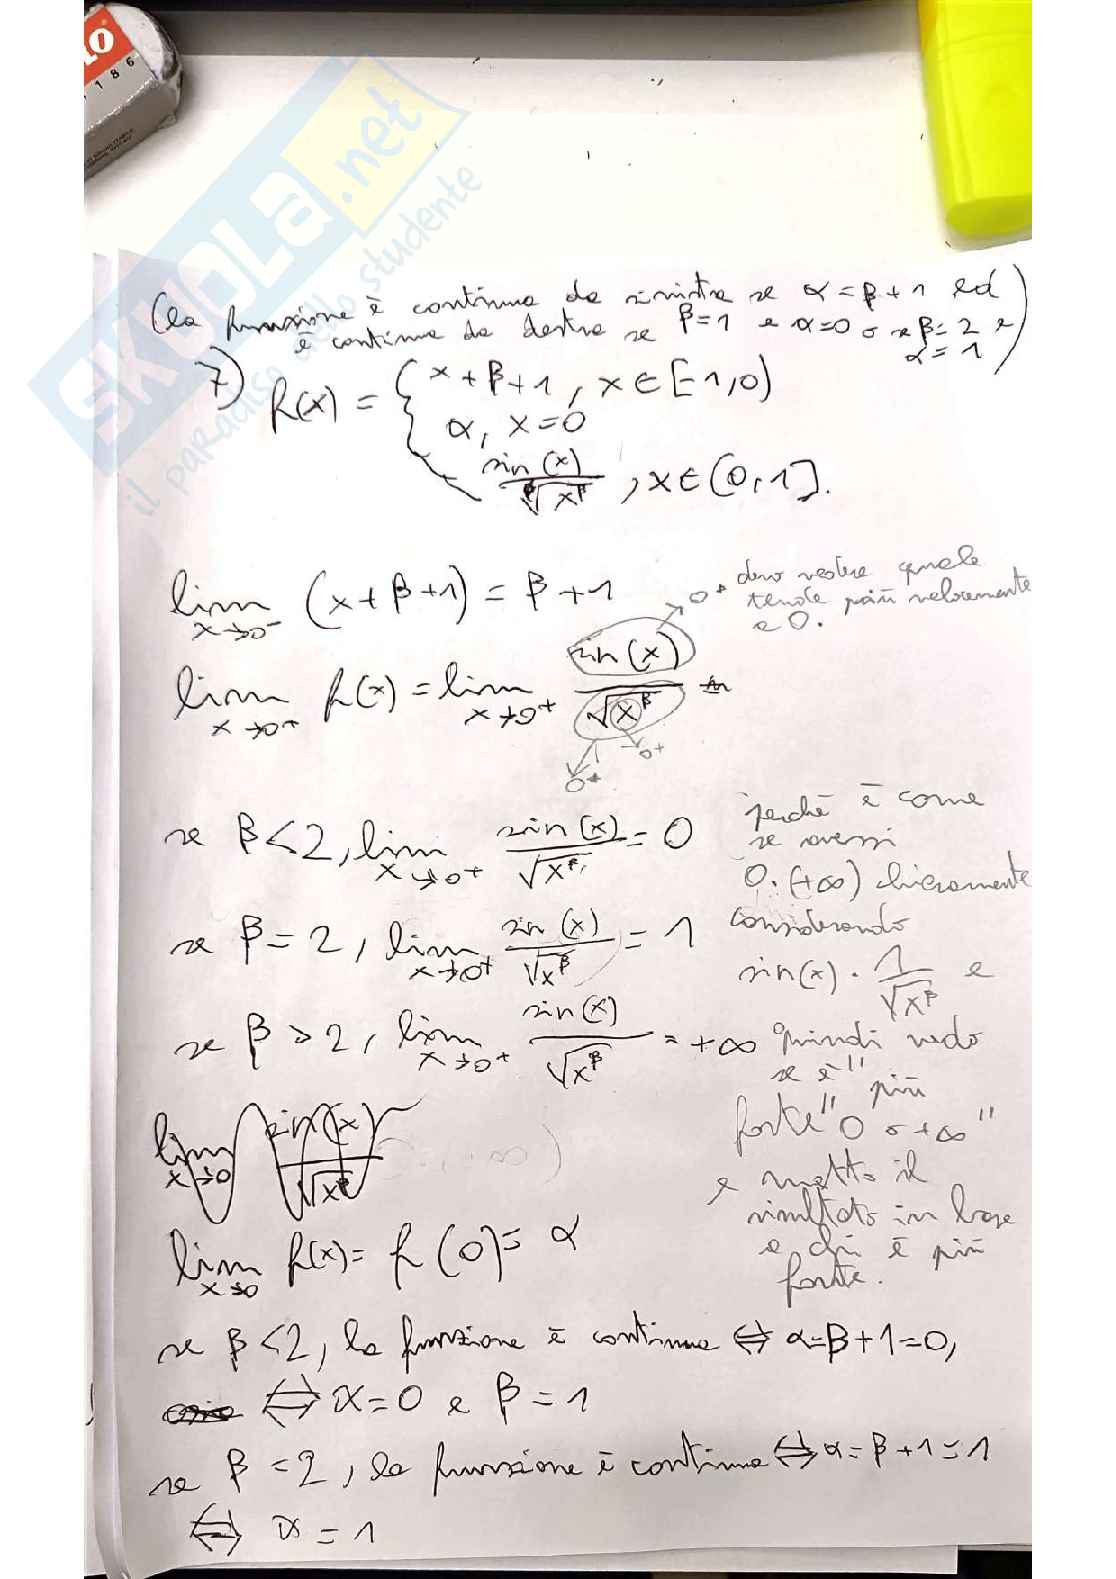 LO
1186
SKUOLA.net
il paradiso dello studente
(la funzione è continua da sinistra se α = β + 1 ed
è continua da destra se β = 1 e α = 0 o se β = 2 e
α = 1)
7) h(x) = { x + β + 1, x ∈ [-1, 0)
α, x = 0
sin(x) / √x^β, x ∈ (0, 1].
lim x→0⁻ (x + β + 1) = β + 1
devo vedere quale
tende più velocemente
a 0.
0⁺
lim x→0⁺ h(x) = lim x→0⁺ sin(x) / √x^β =
0⁺
0⁺
se β < 2, lim x→0⁺ sin(x) / √x^β = 0
perché è come
se avessi
0·(+∞) chiaramente
considerando
sin(x) · 1/√x^β e
quindi vedo
se è "più
forte" 0 o +∞"
e metto il
risultato in base
a chi è più
forte.
se β = 2, lim x→0⁺ sin(x) / √x^β = 1
se β > 2, lim x→0⁺ sin(x) / √x^β = +∞
lim x→0 sin(x) / √x^β
lim x→0 h(x) = h(0) = α
se β < 2, la funzione è continua ⇔ α = β + 1 = 0,
⇔ α = 0 e β = 1
se β = 2, la funzione è continua ⇔ α = β + 1 = 1
⇔ α = 1